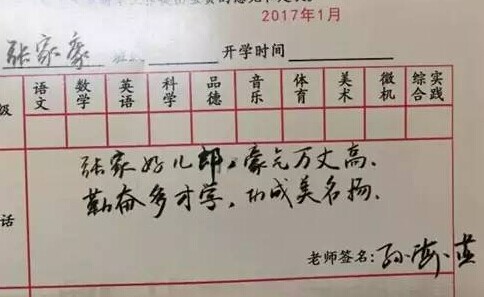 2017年1月
张家豪 开学时间
级 语文 数学 英语 科学 品德 音乐 体育 美术 微机 综合实践
张家好儿郎,豪气万丈高.
勤奋多才学,功成美名扬.
话
老师签名:孙海燕